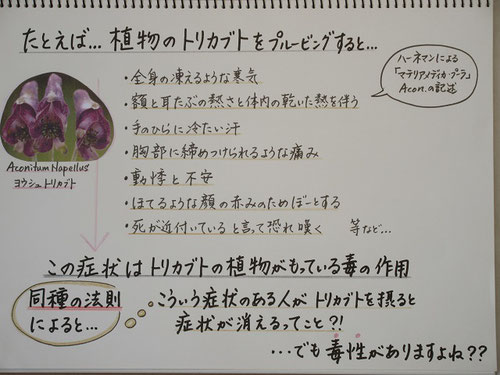 たとえば… 植物のトリカブトをプルービングすると…
ハーネマンによる
「マテリアメディカ・プーラ」
Acon.の記述
・全身の凍えるような寒気
・額と耳たぶの熱さと体内の乾いた熱を伴う
・手のひらに冷たい汗
・胸部に締めつけられるような痛み
・動悸と不安
・ほてるような顔の赤みのためぼーとする
・死が近付いていると言って恐れ嘆く 等など…
Aconitum Napellus
ヨウシュトリカブト
この症状はトリカブトの植物がもっている毒の作用
同種の法則
によると…
こういう症状のある人がトリカブトを摂ると
症状が消えるってこと?!
…でも毒性がありますよね??